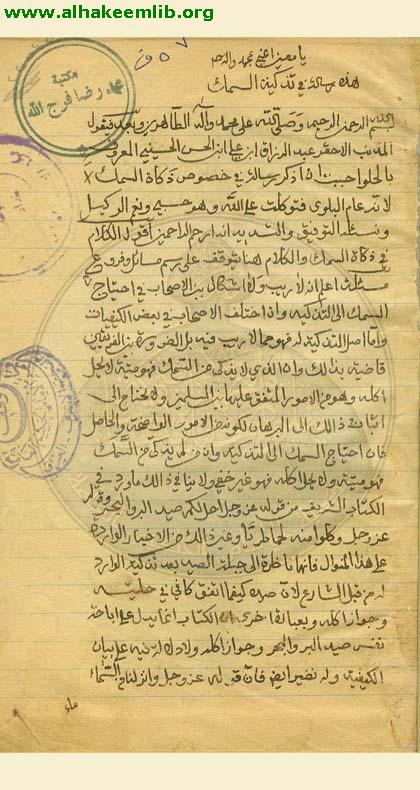 www.alhakeemlib.org
مكتبة
محمد رضا فرج الله
هذه رسالة في تذكية السمك
بسم الله الرحمن الرحيم وصلى الله على محمد وآله الطاهرين وبعد فيقول
المذنب الاحقر عبد الرزاق ابن علي ابن الحسن الحسيني المعروف
بالحلو احببت ان اذكر رسالة في خصوص ذكاة السمك
لانه عام البلوى فتوكلت على الله وهو حسبي ونعم الوكيل
ونسئله التوفيق والتسديد انه ارحم الراحمين اقول الكلام
في ذكاة السمك والكلام هنا يتوقف على رسم مسائل وفروع
مسئلة اعلم انه لا ريب ولا اشكال بين الاصحاب في احتياج
السمك الى التذكية وانما اختلف الاصحاب في بعض الكيفيات
واما اصل التذكية له فهو مما لا ريب فيه بل الضرورة بين الفريقين
قاضية بذلك وان الذي لا يذكى من السمك فهو ميتة لا يحل
اكله وهو من الامور المتفق عليها بين المسلمين ولا يحتاج الى
اثبات في ذلك الى البرهان لكونه من الامور الواضحة والحاصل
فان احتياج السمك الى التذكية وان من لم يذك من السمك
فهو ميتة ولا يحل اكله فهو غير خفي ولا ينافي ذلك ما ورد في
الكتاب الشريف من قوله عز وجل احل لكم صيد البر والبحر وقوله
عز وجل وكلوا منه لحما طريا وغير ذلك من الاخبار الواردة
على هذا المنوال فانها ناظرة الى حلية الصيد بعد تذكية الوارد
له من قبل الشارع لان صيده كيفما اتفق كافي في حليته
وجواز اكله وبعبارة اخرى ان الكتاب انما يدل على اباحة
نفس صيد البر والبحر وجواز اكله ولا دلالة فيه على بيان
الكيفية وله نضير ايض فان قوله عز وجل وانزلنا من السماء
ماء